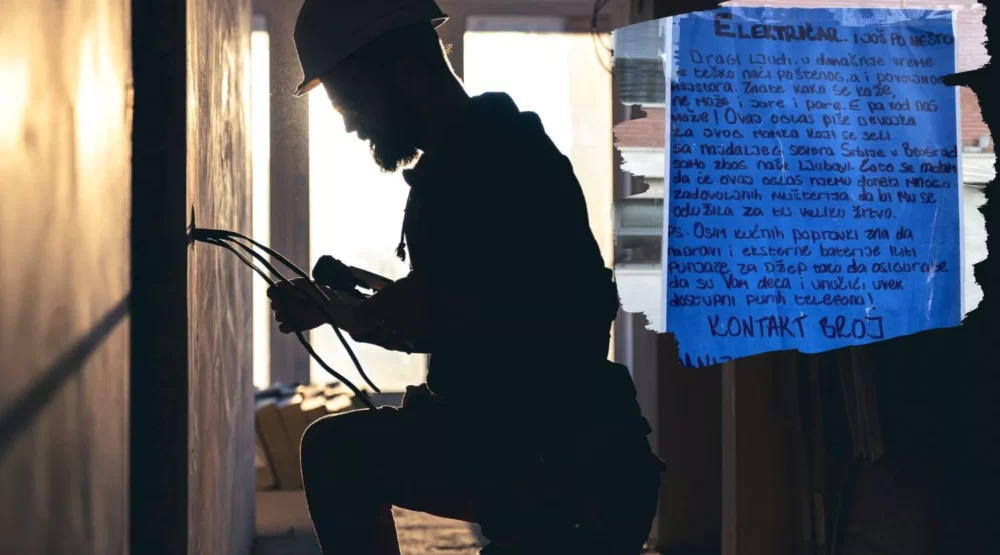 ELEKTRIČAR... I JOŠ PO NEŠTO
Dragi ljudi, u današnje vreme
je teško naći poštenog, a i povoljnog
majstora. Znate kako se kaže,
ne može i jare i pare. E pa kod nas
može! Ovaj oglas piše devojka
za svog momka koji se seli
sa najdaljeg severa Srbije u Beograd
samo zbog naše ljubavi. Zato se molim
da će ovaj oglas njemu doneti mnogo
zadovoljnih mušterija, da bi mu se
odužila za tu veliku žrtvu.
Ps. Osim kućnih popravki zna da
napravi i eksterne baterije iliti
punjače za džep tako da osigurate
da su Vam deca i unučići uvek
dostupni punih telefona!
KONTAKT BROJ